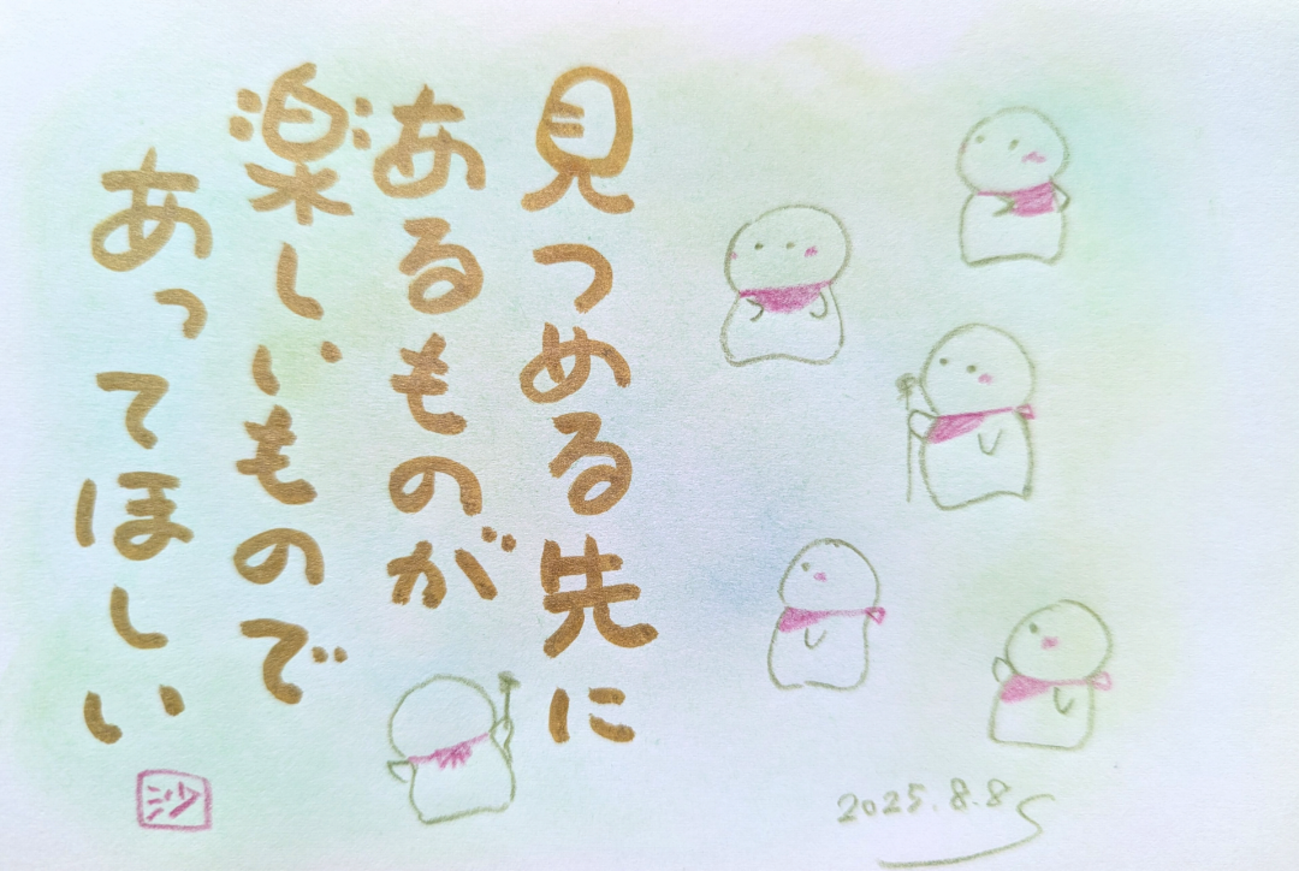 見つめる先に
あるものが
楽しいもので
あってほしい
沙
2025.8.8 S